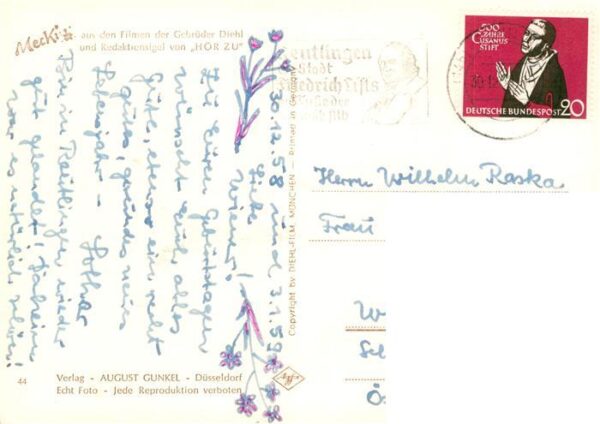 Mecki aus den Filmen der Gebrüder Diehl
und Redaktionsigel von „HÖR ZU"
30.12.58 und 3.1.59
Liebe Wiener!
Zu Euren Geburtstagen
wünscht Euch alles
Gute, etwas ein recht
gutes, gesundes neues
Lebensjahr - Lothar
Bin in Reutlingen wieder
gut gelandet! Daheim
war es natürlich schöner!
Verlag - AUGUST GUNKEL - Düsseldorf
Echt Foto - Jede Reproduktion verboten
44
Copyright by DIEHL-FILM, MÜNCHEN - Printed in Germany
Agfa
Reutlingen
Stadt
Friedrich Lists
30.12
500 JAHRE
CUSANUS
STIFT
DEUTSCHE BUNDESPOST 20
Herrn Wilhelm Raska
Frau
W
Sch
Ö